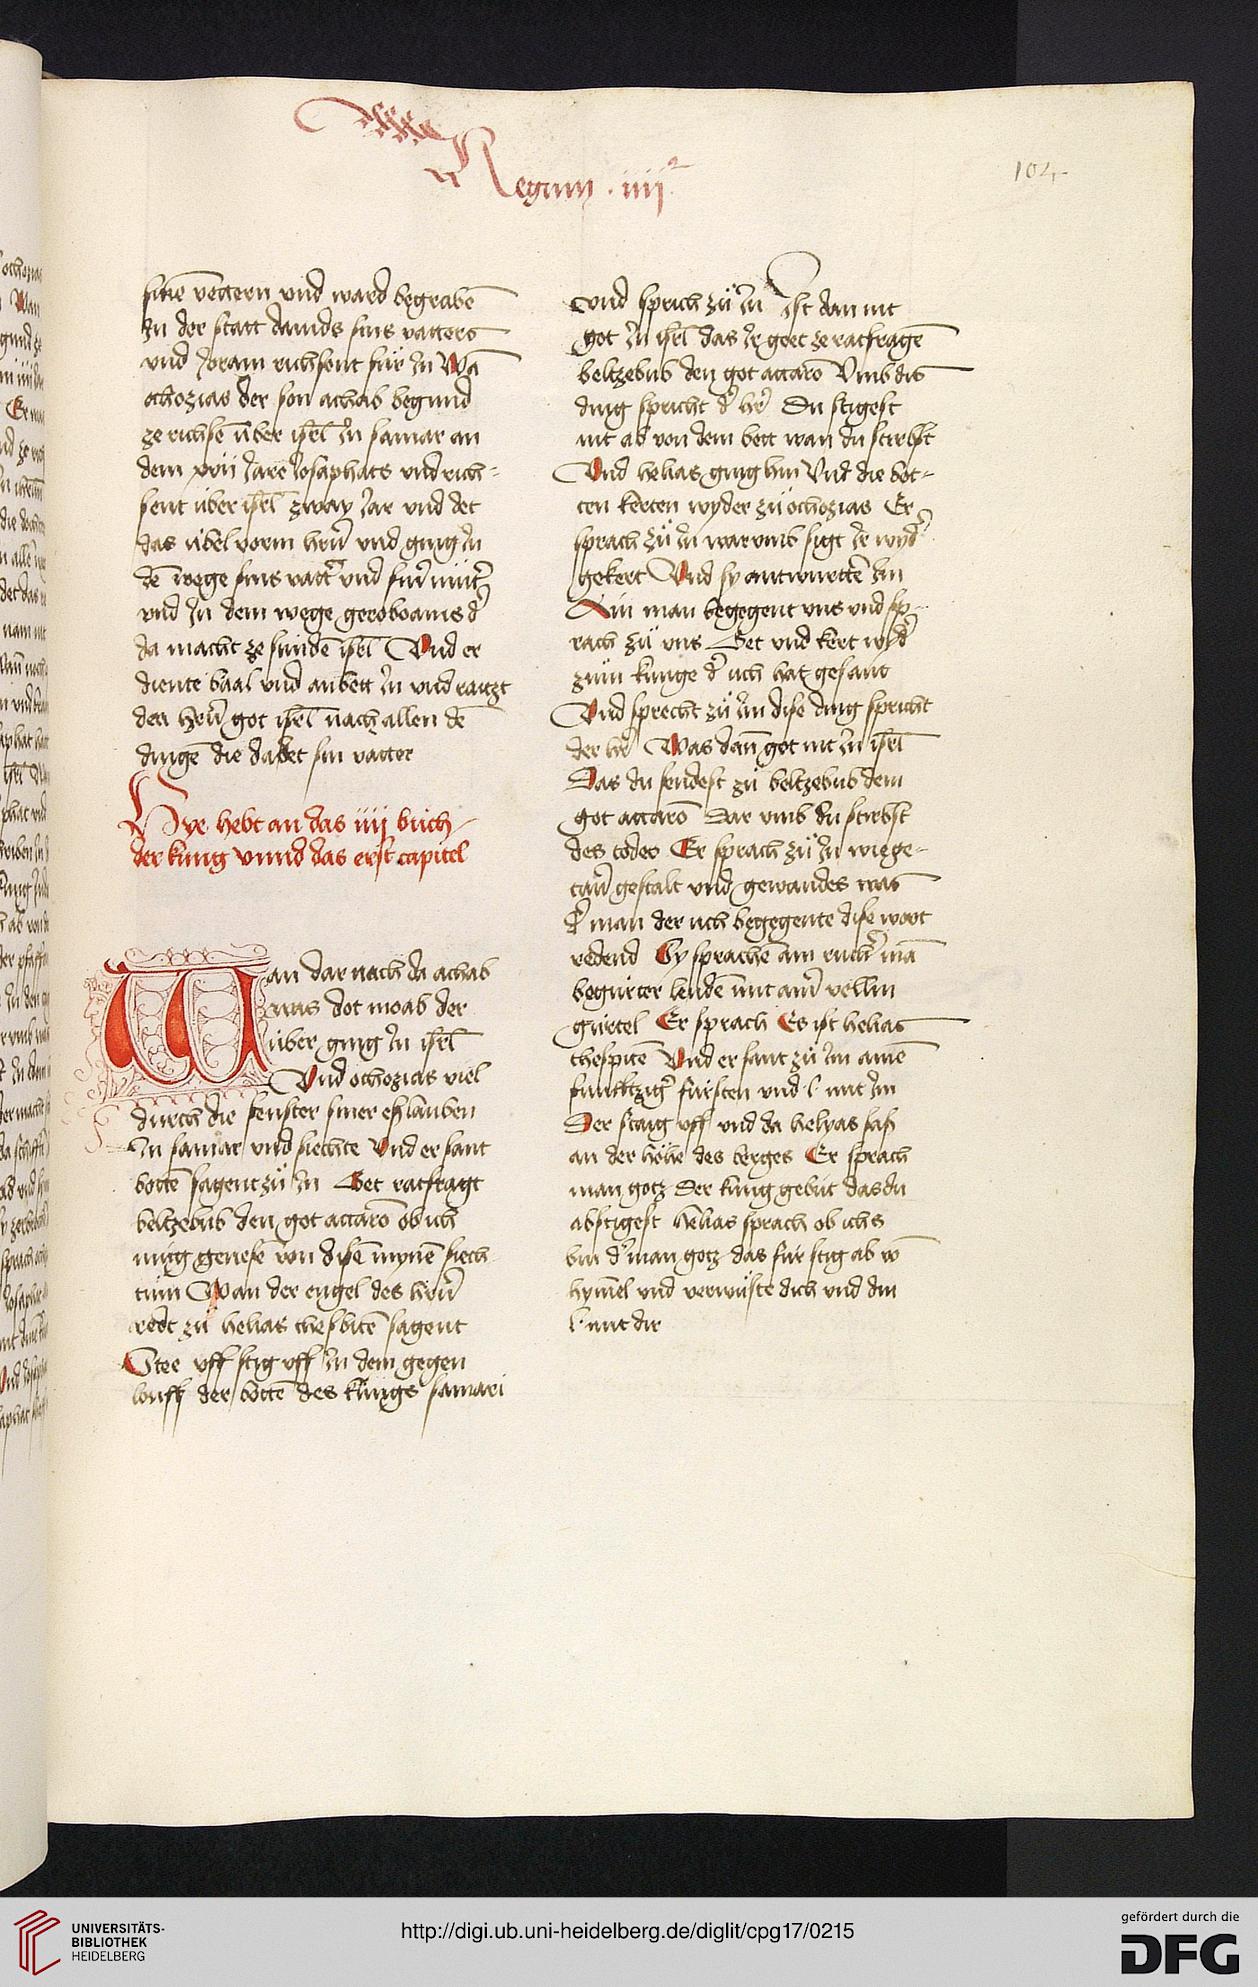 Regum · iiij
104
sinē vettern vnd ward begrabē
Jn der statt dauids sins vatters
vnd Joram richsent für Jn Wā
ochozias der son achab begund
ze richsē über isrl Jn samar an
dem xvij Jare Josaphats vnd rich-
sent über isrl zway Jar vnd det
das übel vorm herñ vnd ging Jn
dē wege sins vatt͛ vnd sin͛ mut͛
vnd Jn dem wege geroboams d͛
da macht ze sündē isrl Vnd er
diente baal vnd anbett Jn vnd raitzt
den herñ got isrl nach allen dē
dingē die da det sin vatter
Hye hebt an das iiij buch
der kung vnnd das erst capitel
Wan dar nach da achab
was dot moab der
über ging Jn isrl
Vnd ochozias viel
durch die fenster siner eßlauben
Jn samar vnd siechte Vnd er sant
bottē sagent zů Jn Get ratfragt
beltzebub den got accarō ob ich
mug genesē von disē mynē siech-
tum Wan der engel des herñ
redt zů helias thesbitē sagent
Stee vff stig vff Jn dem gegen
louff der bottē des kungs samari
vnd sprich zů Jn Jst dan nit
got Jn isrl das Jr geet ze ratfragē
beltzebub den got accarō Vmb dis
ding spricht d͛ her͛ Du stigest
nit ab von dem bett wan du stirbst
Vnd helias ging hin Vnd die bot-
ten kerten wyder zů ochozias Er
sprach zů Jn warumb sigt Jr wyd͛
gekert Vnd sy antwurttē Jm
Ain man begegent vns vnd sp-
rach zů vns Get vnd kert wyd͛
zům kunge d͛ uch hat gesant
Vnd sprecht zů Jm dise ding spricht
der her͛ Was dañ got nit Jn isrl
Das du sendest zů beltzebub dem
got accarō Dar vmb du stirbst
des todes Er sprach zů Jn wie ge-
tañ gestalt vnd gewandes was
d͛ man der uch begegente dise wort
redend Sy sprachē ain ruch͛ mā
begurter lendē mit ain͛ vellin
gurtel Er sprach Es ist helias
thespitē Vnd er sant zů Jm ainē
funfftzig͛ fürsten vnd · l · mit Jm
Der staig vff vnd da helyas saß
an der höhe des berges Er sprach
man gotz Der kung gebut das du
abstigest helias sprach ob ichs
bin d͛ man gotz das für stig ab vō
hym̄el vnd verwüste dich vnd din
l · mit dir
UNIVERSITÄTS-
BIBLIOTHEK
HEIDELBERG
http://digi.ub.uni-heidelberg.de/diglit/cpg17/0215
gefördert durch die
DFG